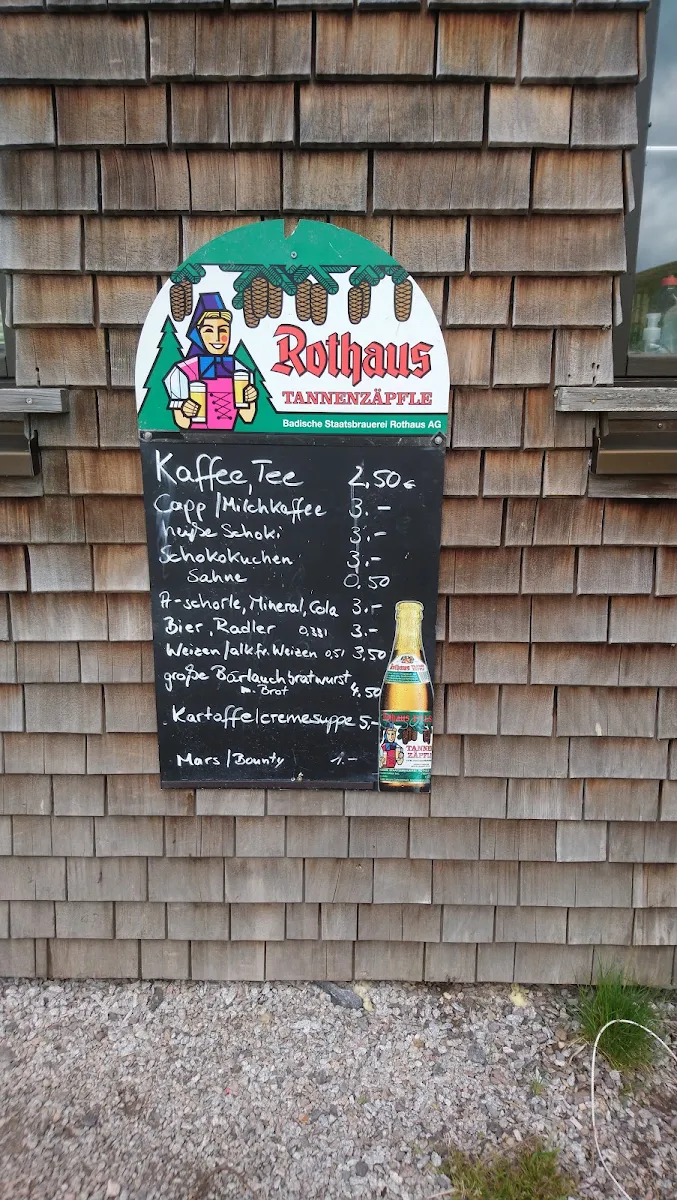 Rothaus
TANNENZÄPFLE
Badische Staatsbrauerei Rothaus AG
Kaffee, Tee 2,50 €
Capp/Milchkaffee 3.-
heiße Schoki 3.-
Schokokuchen 3.-
Sahne 0.50
A-schorle, Mineral, Cola 3.-
Bier, Radler 0,33l 3.-
Weizen/alk.fr. Weizen 0,5l 3,50
große Bärlauchbratwurst
m. Brot 4.50
Kartoffelcremesuppe 5,-
Mars/Bounty 1.-
Rothaus
TANNEN
ZÄPFLE